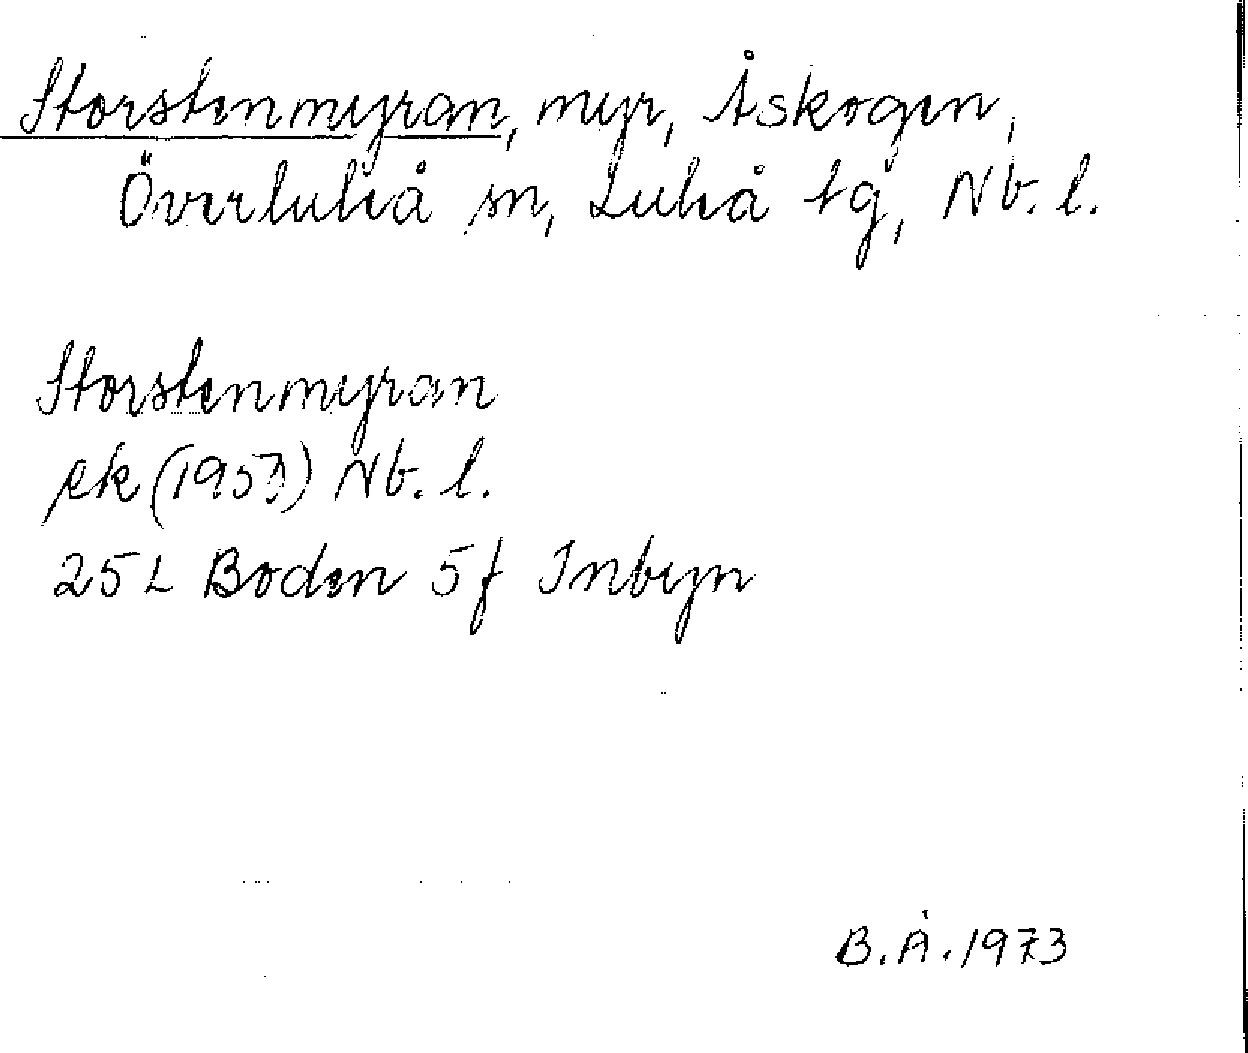 Storstenmyran, myr, Åskogen,
Överluleå sn, Luleå tg, Nb. l.
Storstenmyran
ek (1953) Nb. l.
25 L Boden 5 f Inbyn
B.Å. 1973